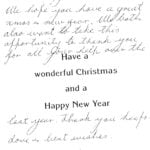 We hope you have a great
xmas & new year. We both
also want to take this
opportunity to thank you
for all your help over the
Have a
wonderful Christmas
and a
Happy New Year
last year. Thank you heaps
done & best wishes